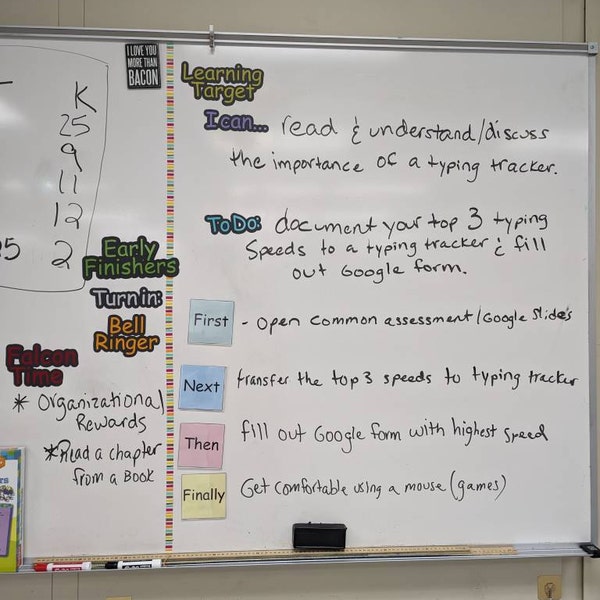 I LOVE YOU
MORE THAN
BACON
K
25
9
11
12
2
Early
Finishers
Turn in:
Bell
Ringer
Falcon
Time
* Organizational
Rewards
* Read a chapter
from a Book
Learning
Target
I can... read & understand/discuss
the importance of a typing tracker.
To Do: document your top 3 typing
Speeds to a typing tracker & fill
out Google form.
First - Open Common assessment/Google Slides
Next transfer the top 3 speeds to typing tracker
Then fill out Google form with highest speed
Finally Get comfortable using a mouse (games)